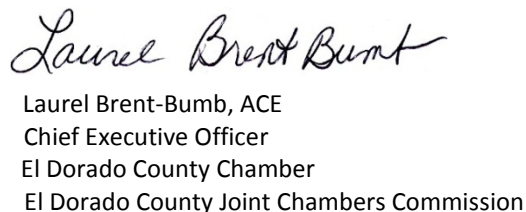 Laurel Brent Bumb
Laurel Brent-Bumb, ACE
Chief Executive Officer
El Dorado County Chamber
El Dorado County Joint Chambers Commission